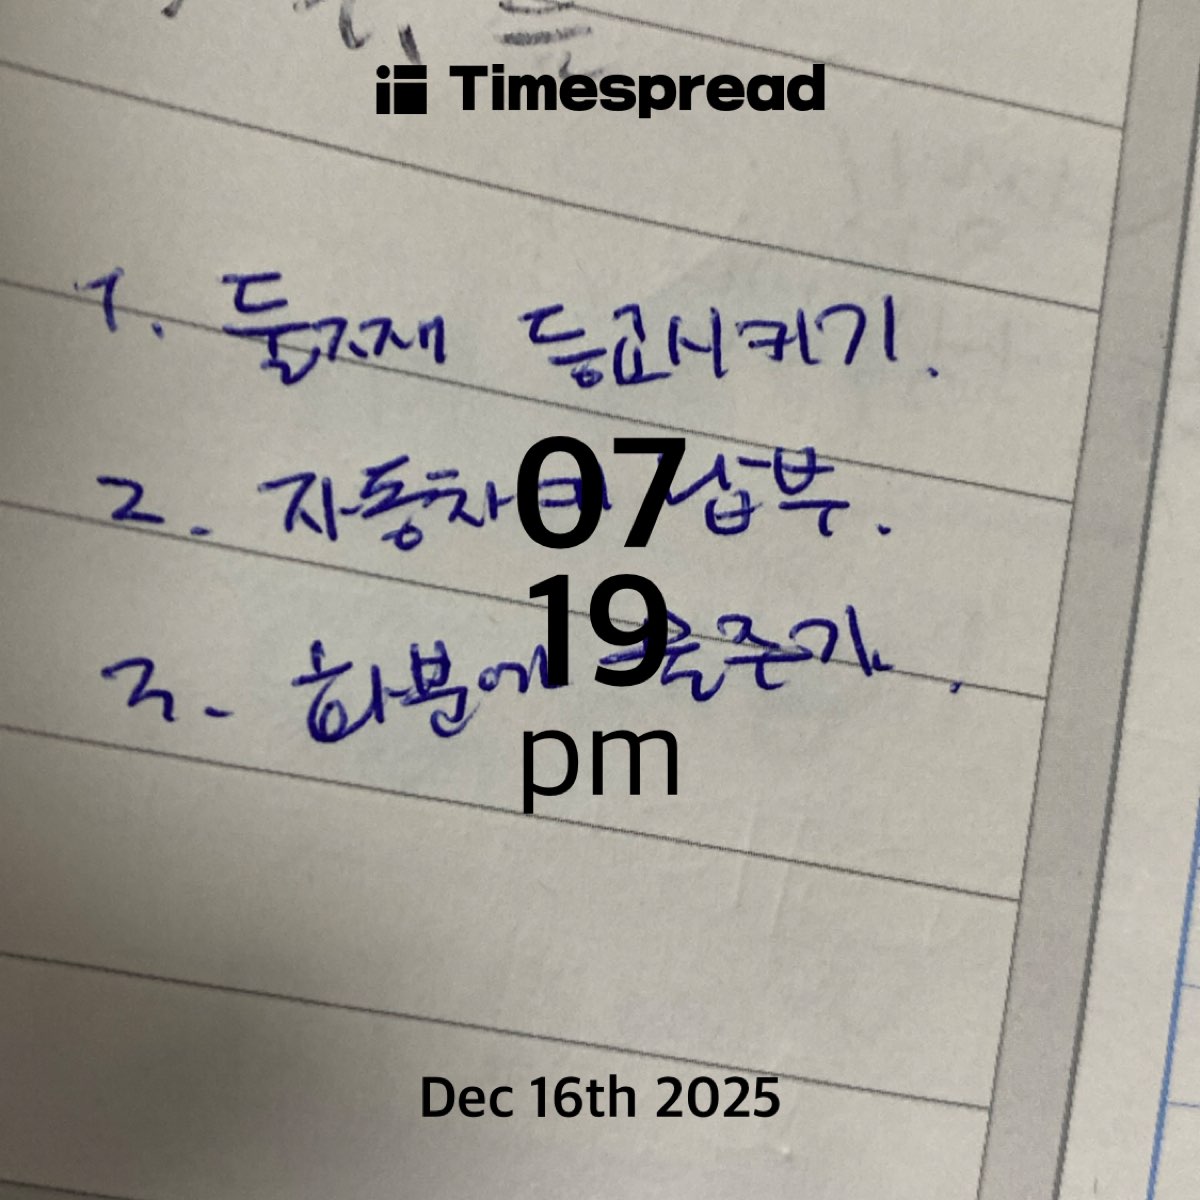 Timespread
1. 둘째 등교시키기.
2. 자동차 납부.
3. 화분에 물주기.
07
19
pm
Dec 16th 2025